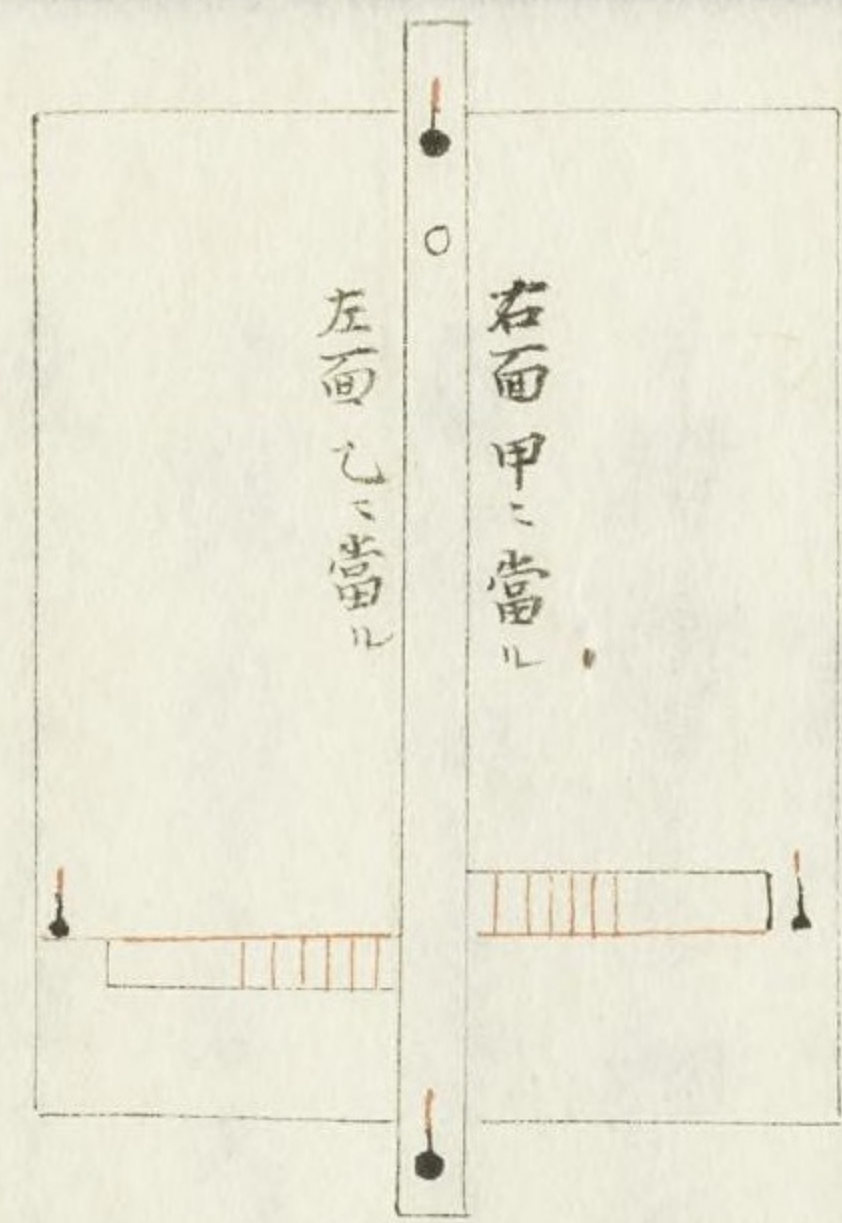 右面甲ニ當ル
左面乙ニ當ル